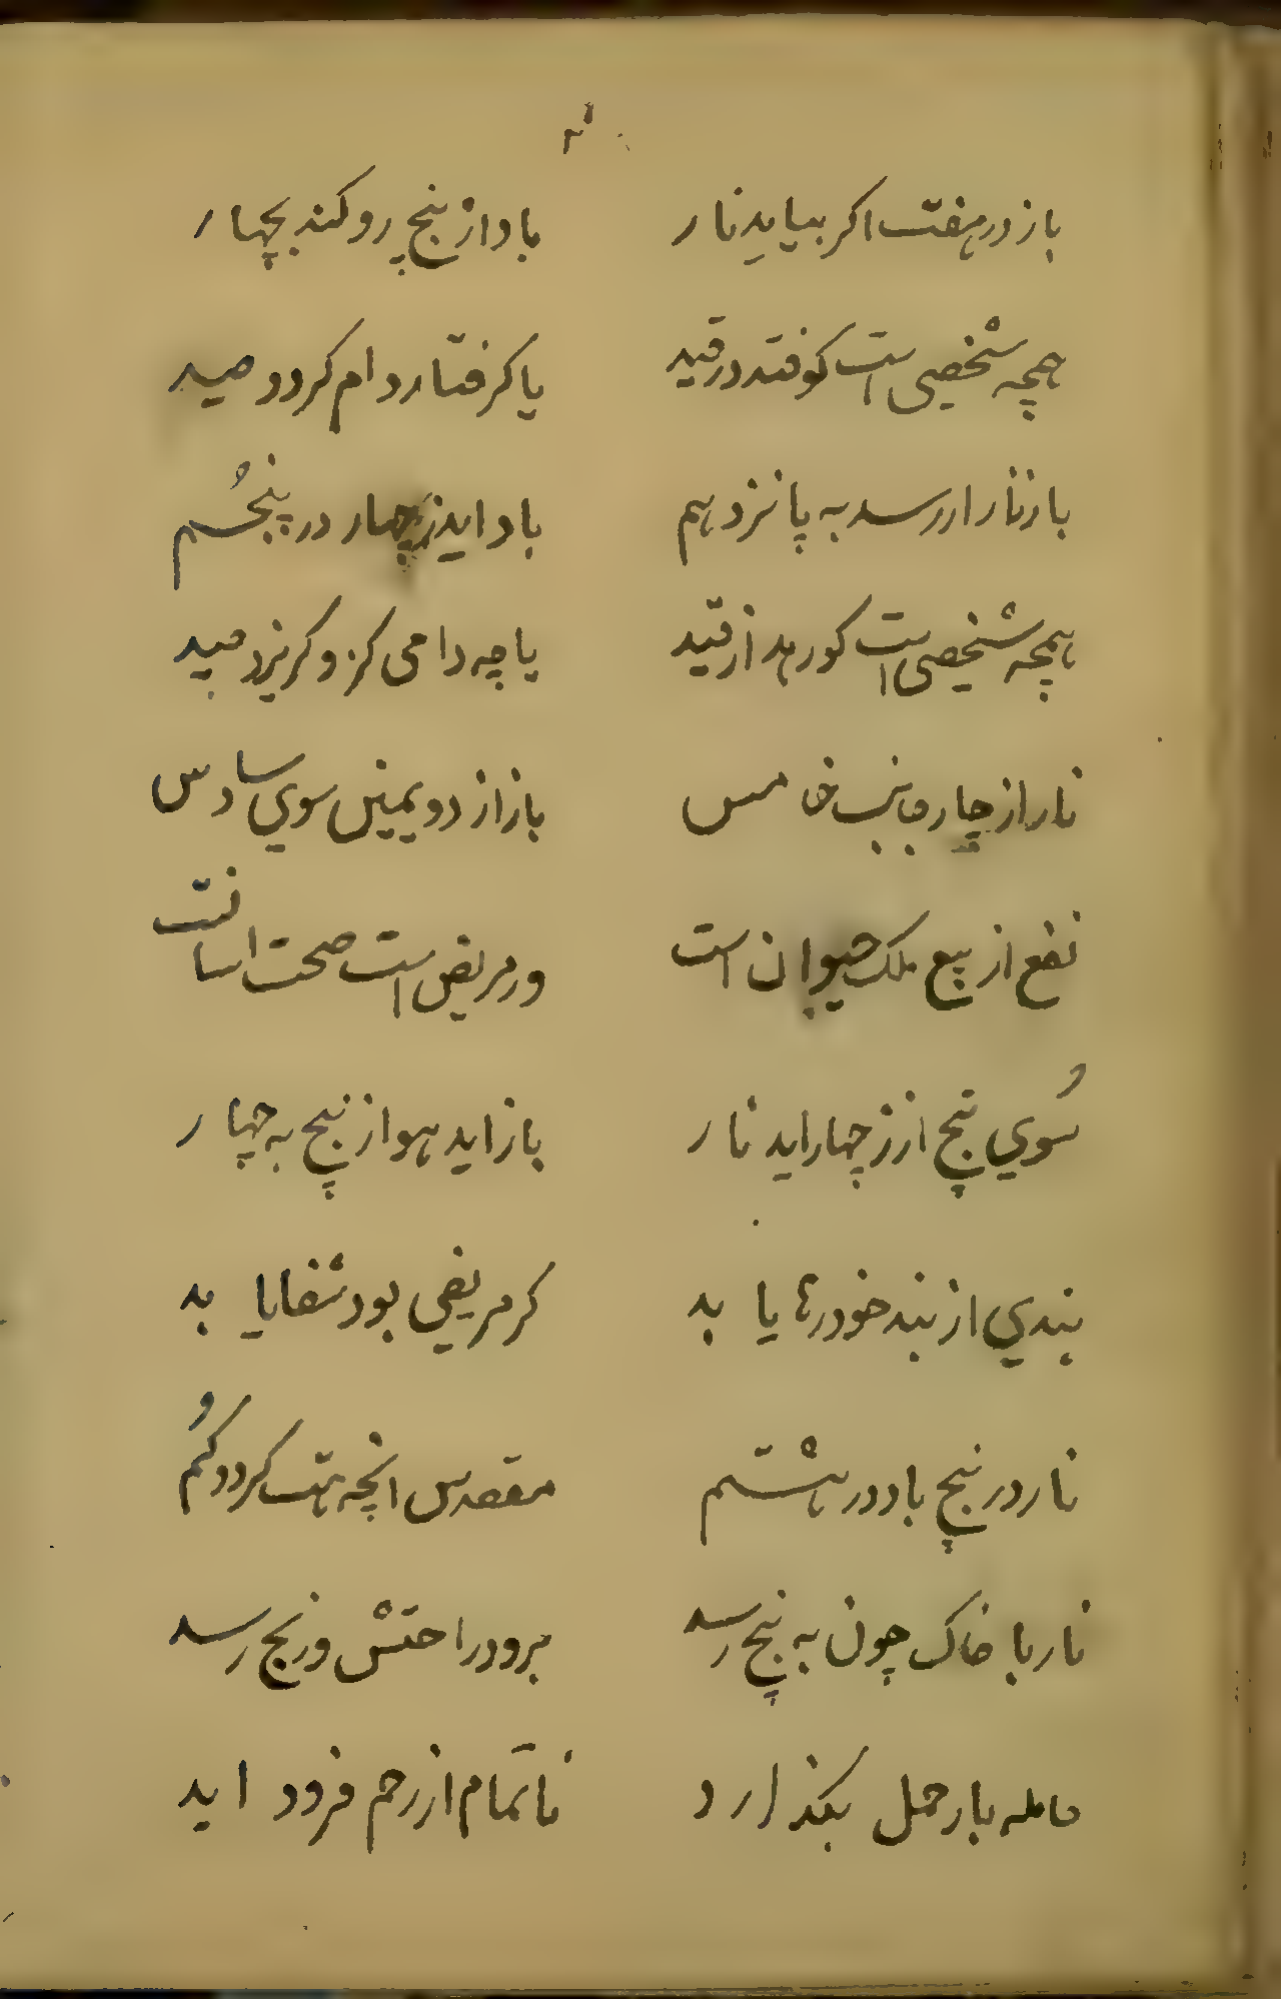 باز در هفت اکر بیاید نار
باد از پنج رو کند بچهار
همچه شخصی است کو فتد در قید
یا کرفتار دام کردد صید
باز نار ار رسد به پانزدهم
باد اید ز چهار در پنجُم
همچه شخیصی است کو رهد از قید
یا چه دامی کز و کریزد صید
نار از چار جانب خامس
باز از دویمین سوی سادس
نفع از بیع ملک حیوان است
ور مریض است صحت اسانست
سُوی پنج ار ز چهار اید نار
باز اید هوا از پنج به چهار
بندی از بند خود رها یابد
کر مریضی بود شفا یابد
نار در پنج باد در هشتم
مقصدس انچه هست کردد کُم
نار با خاک چون به پنج رسد
برود راحتش و رنج رسد
حامله بار حمل بکذارد
ناتمام از رحم فرود اید